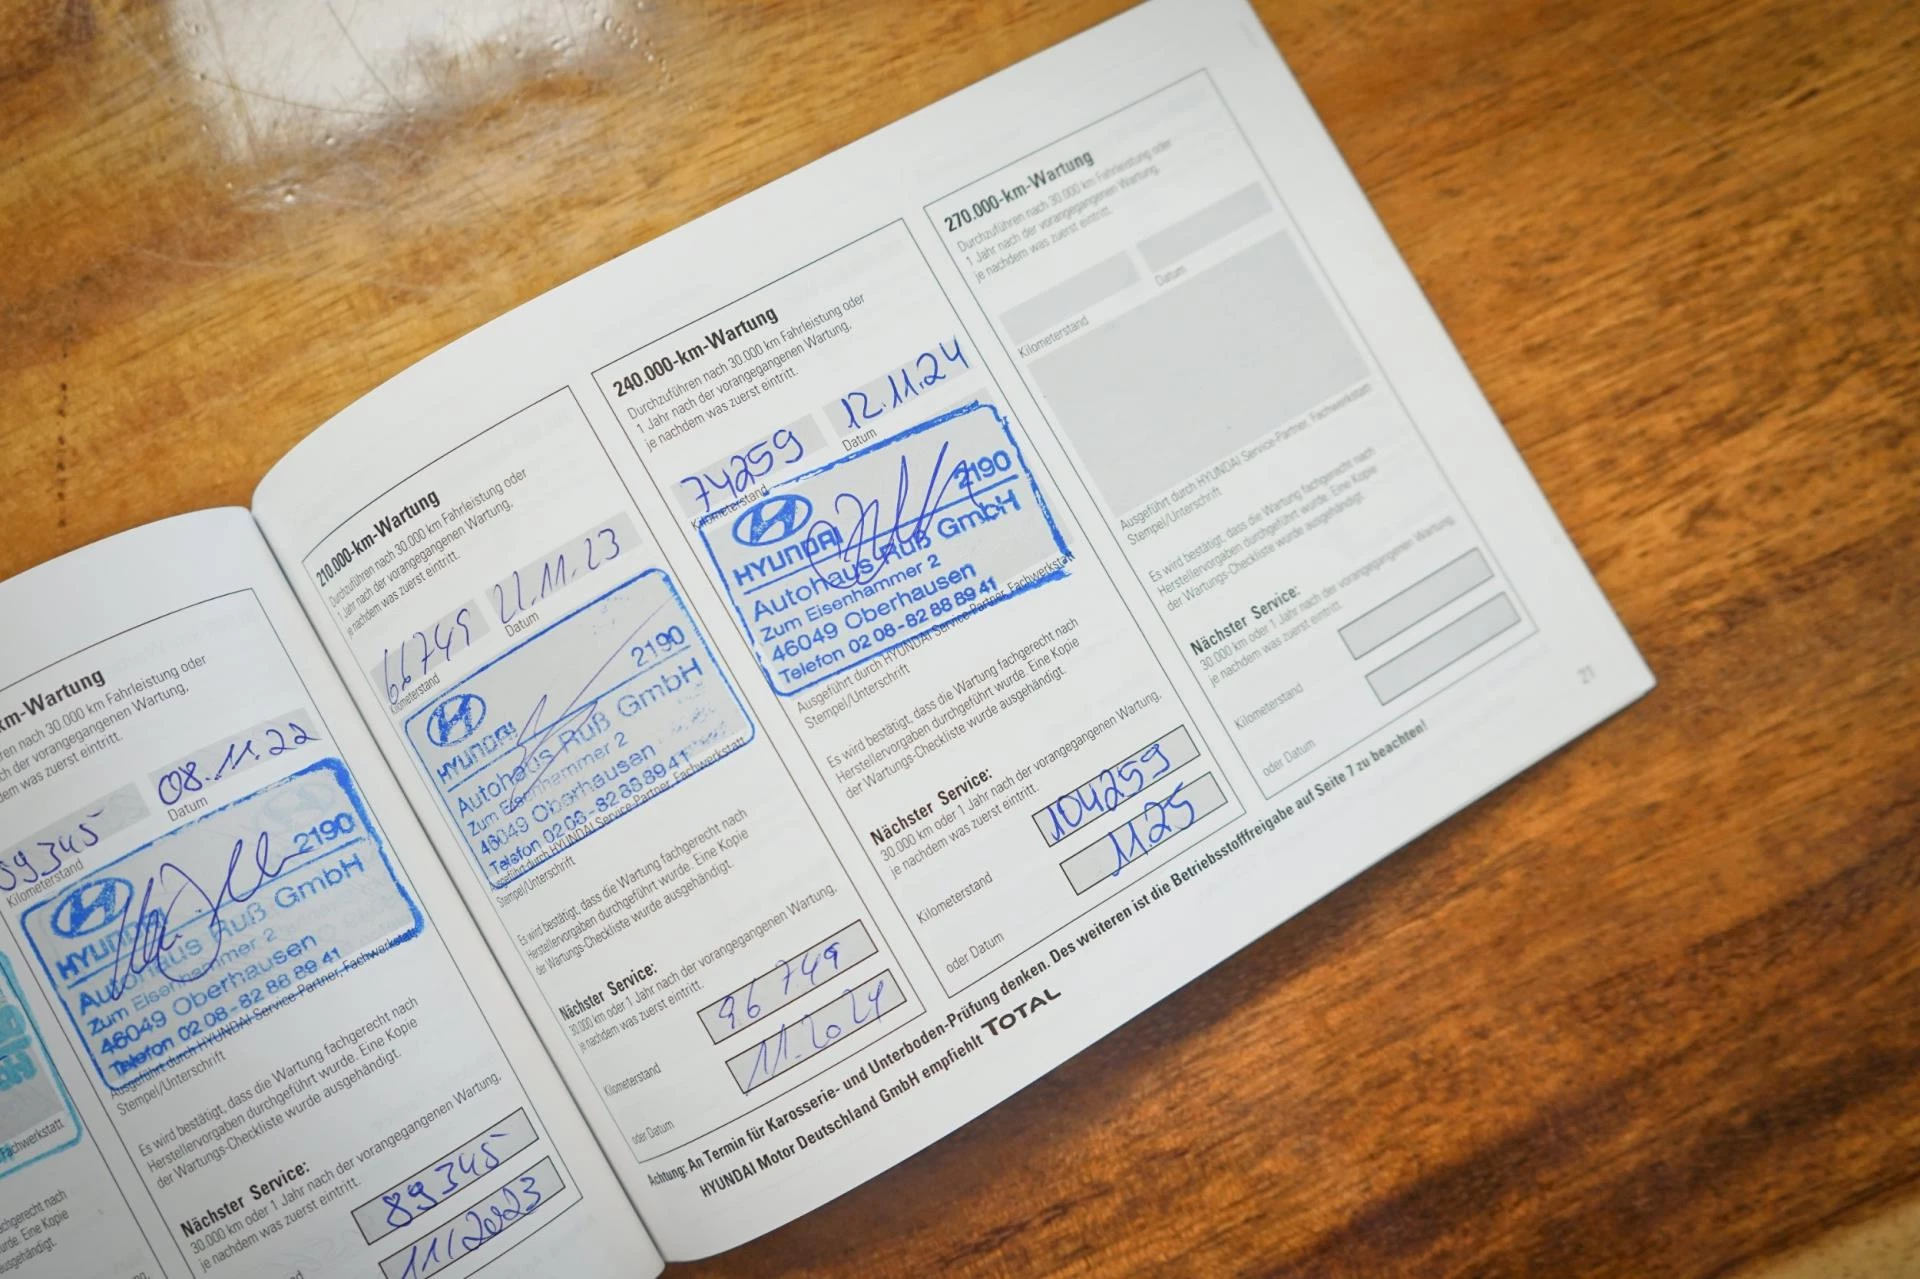 km-Wartung
ren nach 30.000 km Fahrleistung oder
ch der vorangegangenen Wartung,
dem was zuerst eintritt.
59345
08.11.22
Kilometerstand
Datum
2190
HYUNDAI
Autohaus Ruß GmbH
Zum Eisenhammer 2
46049 Oberhausen
Telefon 02 08 - 82 88 89 41
Ausgeführt durch HYUNDAI Service-Partner, Fachwerkstatt
Stempel/Unterschrift
Es wird bestätigt, dass die Wartung fachgerecht nach
Herstellervorgaben durchgeführt wurde. Eine Kopie
der Wartungs-Checkliste wurde ausgehändigt.
Nächster Service:
30.000 km oder 1 Jahr nach der vorangegangenen Wartung,
je nachdem was zuerst eintritt.
89345
11/2023
Fachwerkstatt
chgerecht nach
urde. Eine Kopie
händigt.
210.000-km-Wartung
Durchzuführen nach 30.000 km Fahrleistung oder
1 Jahr nach der vorangegangenen Wartung,
je nachdem was zuerst eintritt.
66749
22.11.23
Kilometerstand
Datum
2190
HYUNDAI
Autohaus Ruß GmbH
Zum Eisenhammer 2
46049 Oberhausen
Telefon 02 08 - 82 88 89 41
Ausgeführt durch HYUNDAI Service-Partner, Fachwerkstatt
Stempel/Unterschrift
Es wird bestätigt, dass die Wartung fachgerecht nach
Herstellervorgaben durchgeführt wurde. Eine Kopie
der Wartungs-Checkliste wurde ausgehändigt.
Nächster Service:
30.000 km oder 1 Jahr nach der vorangegangenen Wartung,
je nachdem was zuerst eintritt.
Kilometerstand
96749
oder Datum
11.2024
240.000-km-Wartung
Durchzuführen nach 30.000 km Fahrleistung oder
1 Jahr nach der vorangegangenen Wartung,
je nachdem was zuerst eintritt.
74259
12.11.24
Kilometerstand
Datum
2190
HYUNDAI
Autohaus Ruß GmbH
Zum Eisenhammer 2
46049 Oberhausen
Telefon 02 08 - 82 88 89 41
Ausgeführt durch HYUNDAI Service-Partner, Fachwerkstatt
Stempel/Unterschrift
Es wird bestätigt, dass die Wartung fachgerecht nach
Herstellervorgaben durchgeführt wurde. Eine Kopie
der Wartungs-Checkliste wurde ausgehändigt.
Nächster Service:
30.000 km oder 1 Jahr nach der vorangegangenen Wartung,
je nachdem was zuerst eintritt.
Kilometerstand
104259
oder Datum
11.25
270.000-km-Wartung
Durchzuführen nach 30.000 km Fahrleistung oder
1 Jahr nach der vorangegangenen Wartung,
je nachdem was zuerst eintritt.
Kilometerstand
Datum
Ausgeführt durch HYUNDAI Service-Partner, Fachwerkstatt
Stempel/Unterschrift
Es wird bestätigt, dass die Wartung fachgerecht nach
Herstellervorgaben durchgeführt wurde. Eine Kopie
der Wartungs-Checkliste wurde ausgehändigt.
Nächster Service:
30.000 km oder 1 Jahr nach der vorangegangenen Wartung,
je nachdem was zuerst eintritt.
Kilometerstand
oder Datum
Achtung: An Termin für Karosserie- und Unterboden-Prüfung denken. Des weiteren ist die Betriebsstofffreigabe auf Seite 7 zu beachten!
HYUNDAI Motor Deutschland GmbH empfiehlt TOTAL
21